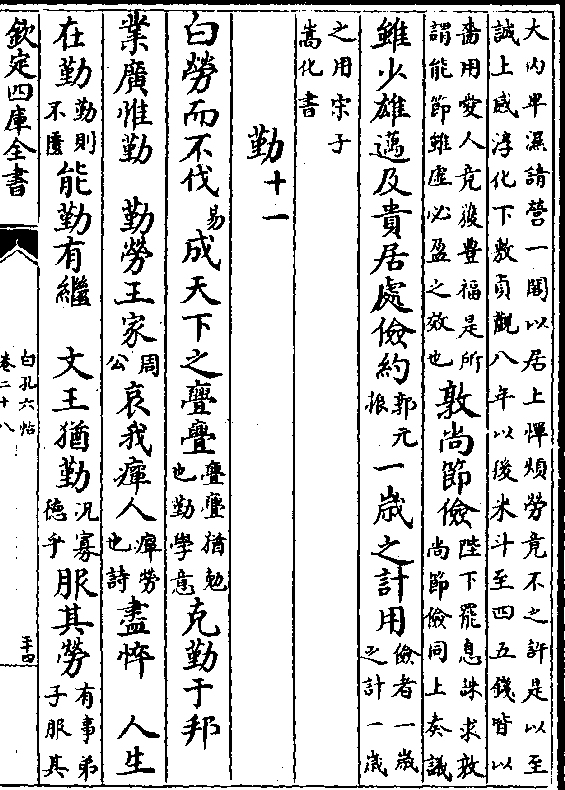 大内卑濕請營一閣以居上憚煩勞竟不之許是以至
誠上感淳化下敷貞觀八年以後米斗至四五錢皆以
嗇用愛人竟獲豊福是所
謂能節雖虛必盈之效也
敦尚節儉
陛下罷息誅求敦
尚節儉同上奏議
雖少雄邁及貴居處儉約
郭元
振
一歳之計用
儉者一歳
之計一歳
之用宋子
嵩化書
勤十一
白勞而不伐
易
成天下之亹亹
亹亹猶勉
也勤學意
克勤于邦
業廣惟勤　勤勞王家
周
公
哀我瘅人
瘅勞
也詩
盡悴　人生
在勤
勤則
不匱
能勤有繼　文王猶勤
况寡
德乎
服其勞
有事弟
子服其
欽定四庫全書
白孔六帖
卷二十八